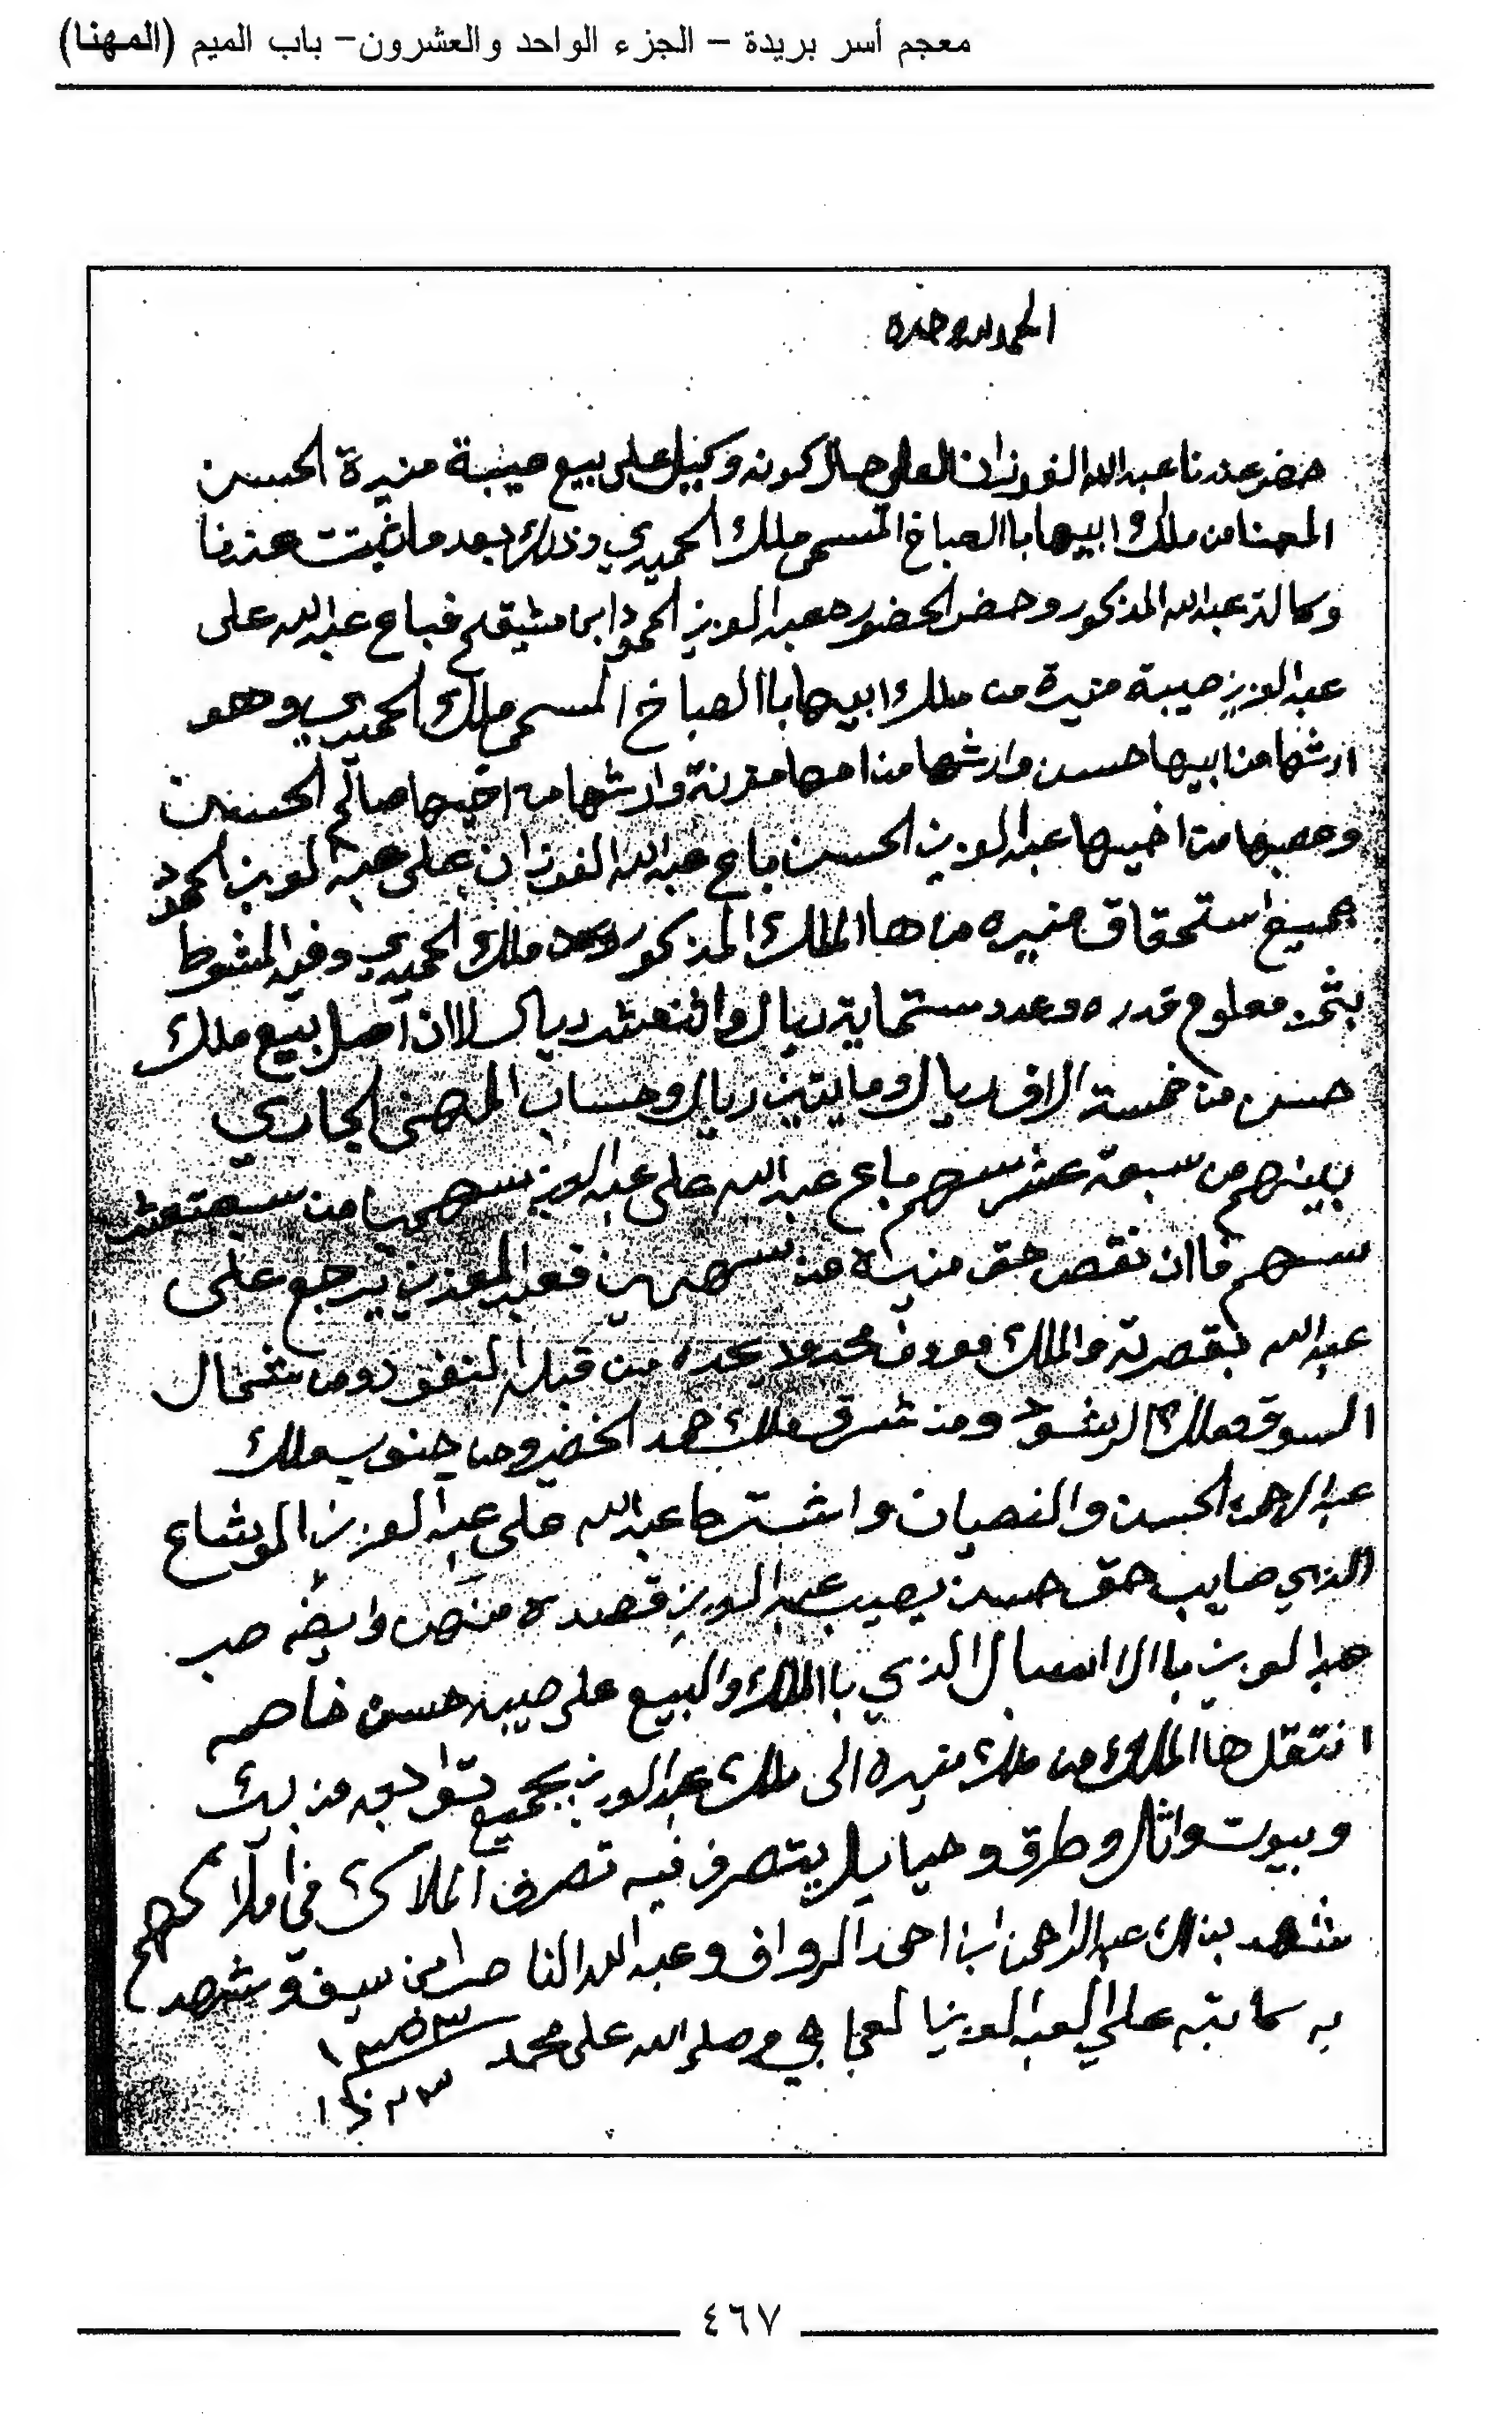 معجم أسر بريدة – الجزء الواحد والعشرون– باب الميم (المهنا)
الحمد لله وحده
حضر عندنا عبدالله الفوزان العلي حال كونه وكيل على بيع صيبة منيرة الحسن
المهنا من ملك ابيها باالصباخ المسمى ملك الحميدي وذلك بعد ما ثبتت عندنا
وكالة عبدالله المذكور وحضر لحضوره عبدالعزيز الحمود ابن مشيقح فباع عبدالله على
عبدالعزيز صيبة منيرة من ملك ابيها باالصباخ المسمى ملك الحميدي وهو
ارثها من ابيها حسن وارثها من امها مزنة وارثها من اخيها صالح الحسن
وعصبها من اخيها عبدالعزيز الحسن باع عبدالله الفوزان على عبدالعزيز الحمود
جميع استحقاق منيره من هاالملك المذكور ملك الحميدي وفيد المشوط
بثمن معلوم قدره وعدده ستماية ريال واثنعشر ريال لان اصل بيع ملك
حسن من خمسة الاف ريال ومايتين ريال وحساب المهنى الجاري
بينهم من سبعة عشر سهم باع عبدالله على عبدالعزيز سهمين من سبعتعشر
سهم فاان نقص حق منيرة عن سهمين فعبدالعزيز يرجع على
عبدالله بقصرته والملك معروف محدود يحده من قبله النفود ومن شمال
السوق وملك الرشود ومن شرق ملك حمد الخضير ومن جنوب ملك
عبدالرحمن الحسن والنصيان واشترط عبدالله على عبدالعزيز الموشاع
الذي صايب حق حسن يصيب عبدالعزيز قصده منهن وايضه
عبدالعزيز باالا الذي باالملك والبيع على صيبة حسن خاصه
انتقل هاالملك من ملك منيره الى ملك عبدالعزيز بجميع توابعه من بير
وبيوت واثل وطرق وحيايل يتصرف فيه تصرف الملاك في املاكهم
شهد بذلك عبدالرحمن ابن احمد الرواف وعبدالله الناصر ابن سيف وشهد
به كاتبه علي العبدالعزيز العجاجي وصلى الله على محمد ١٣٥٣
٤٦٧